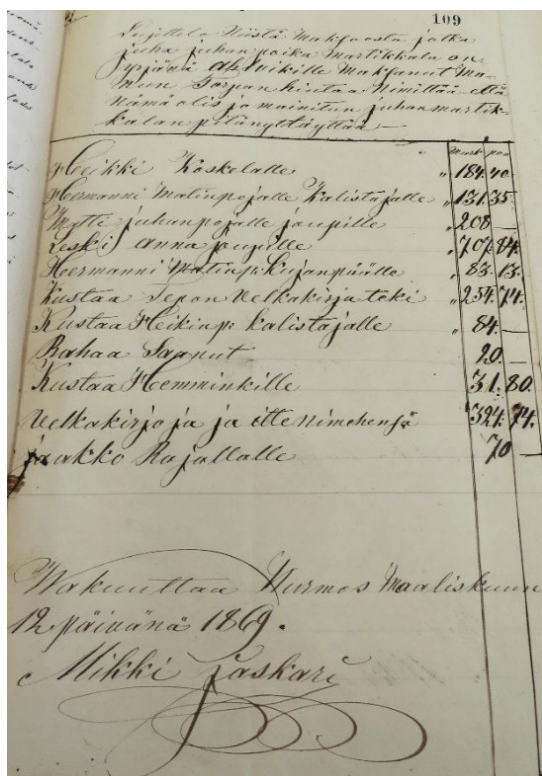 109
Lujettelo Niistä Makfuosta jotka
juha juhanpoika Martikkala on
yrjänä Makfanut Ma-
nun Torpan hintaa Nimittää että
Nämä olis jo mainitun juhaa martik-
kalan pitänyt täyttää —
Mark pen
Heikki Koskelalle " 184.40
Hermanni Matinpojalle Kalistajalle " 131.35
Mytti juhanpojalle jaupille " 208 —
Leski Anna jaupille " 707.84
Heermanni Matinp: Kujanpäälle " 83.13
Kustaa Sepon Velkakirja teki " 254.74
Kustaa Heikinp: Kalistajalle " 84. —
Rahaa Saanut 20. —
Kustaa Hemminkille 31.80
Velkakirjoja ja itte nimehensä 324.74
jaakko Rajallalle 70 —
Wakuuttaa Nurmos Maaliskuun
12 päivänä 1869.
Mikki jaskari